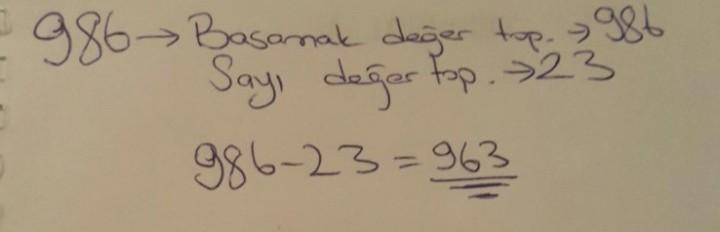 986→ Basamak değer top. →986
Sayı değer top. →23
986-23=963